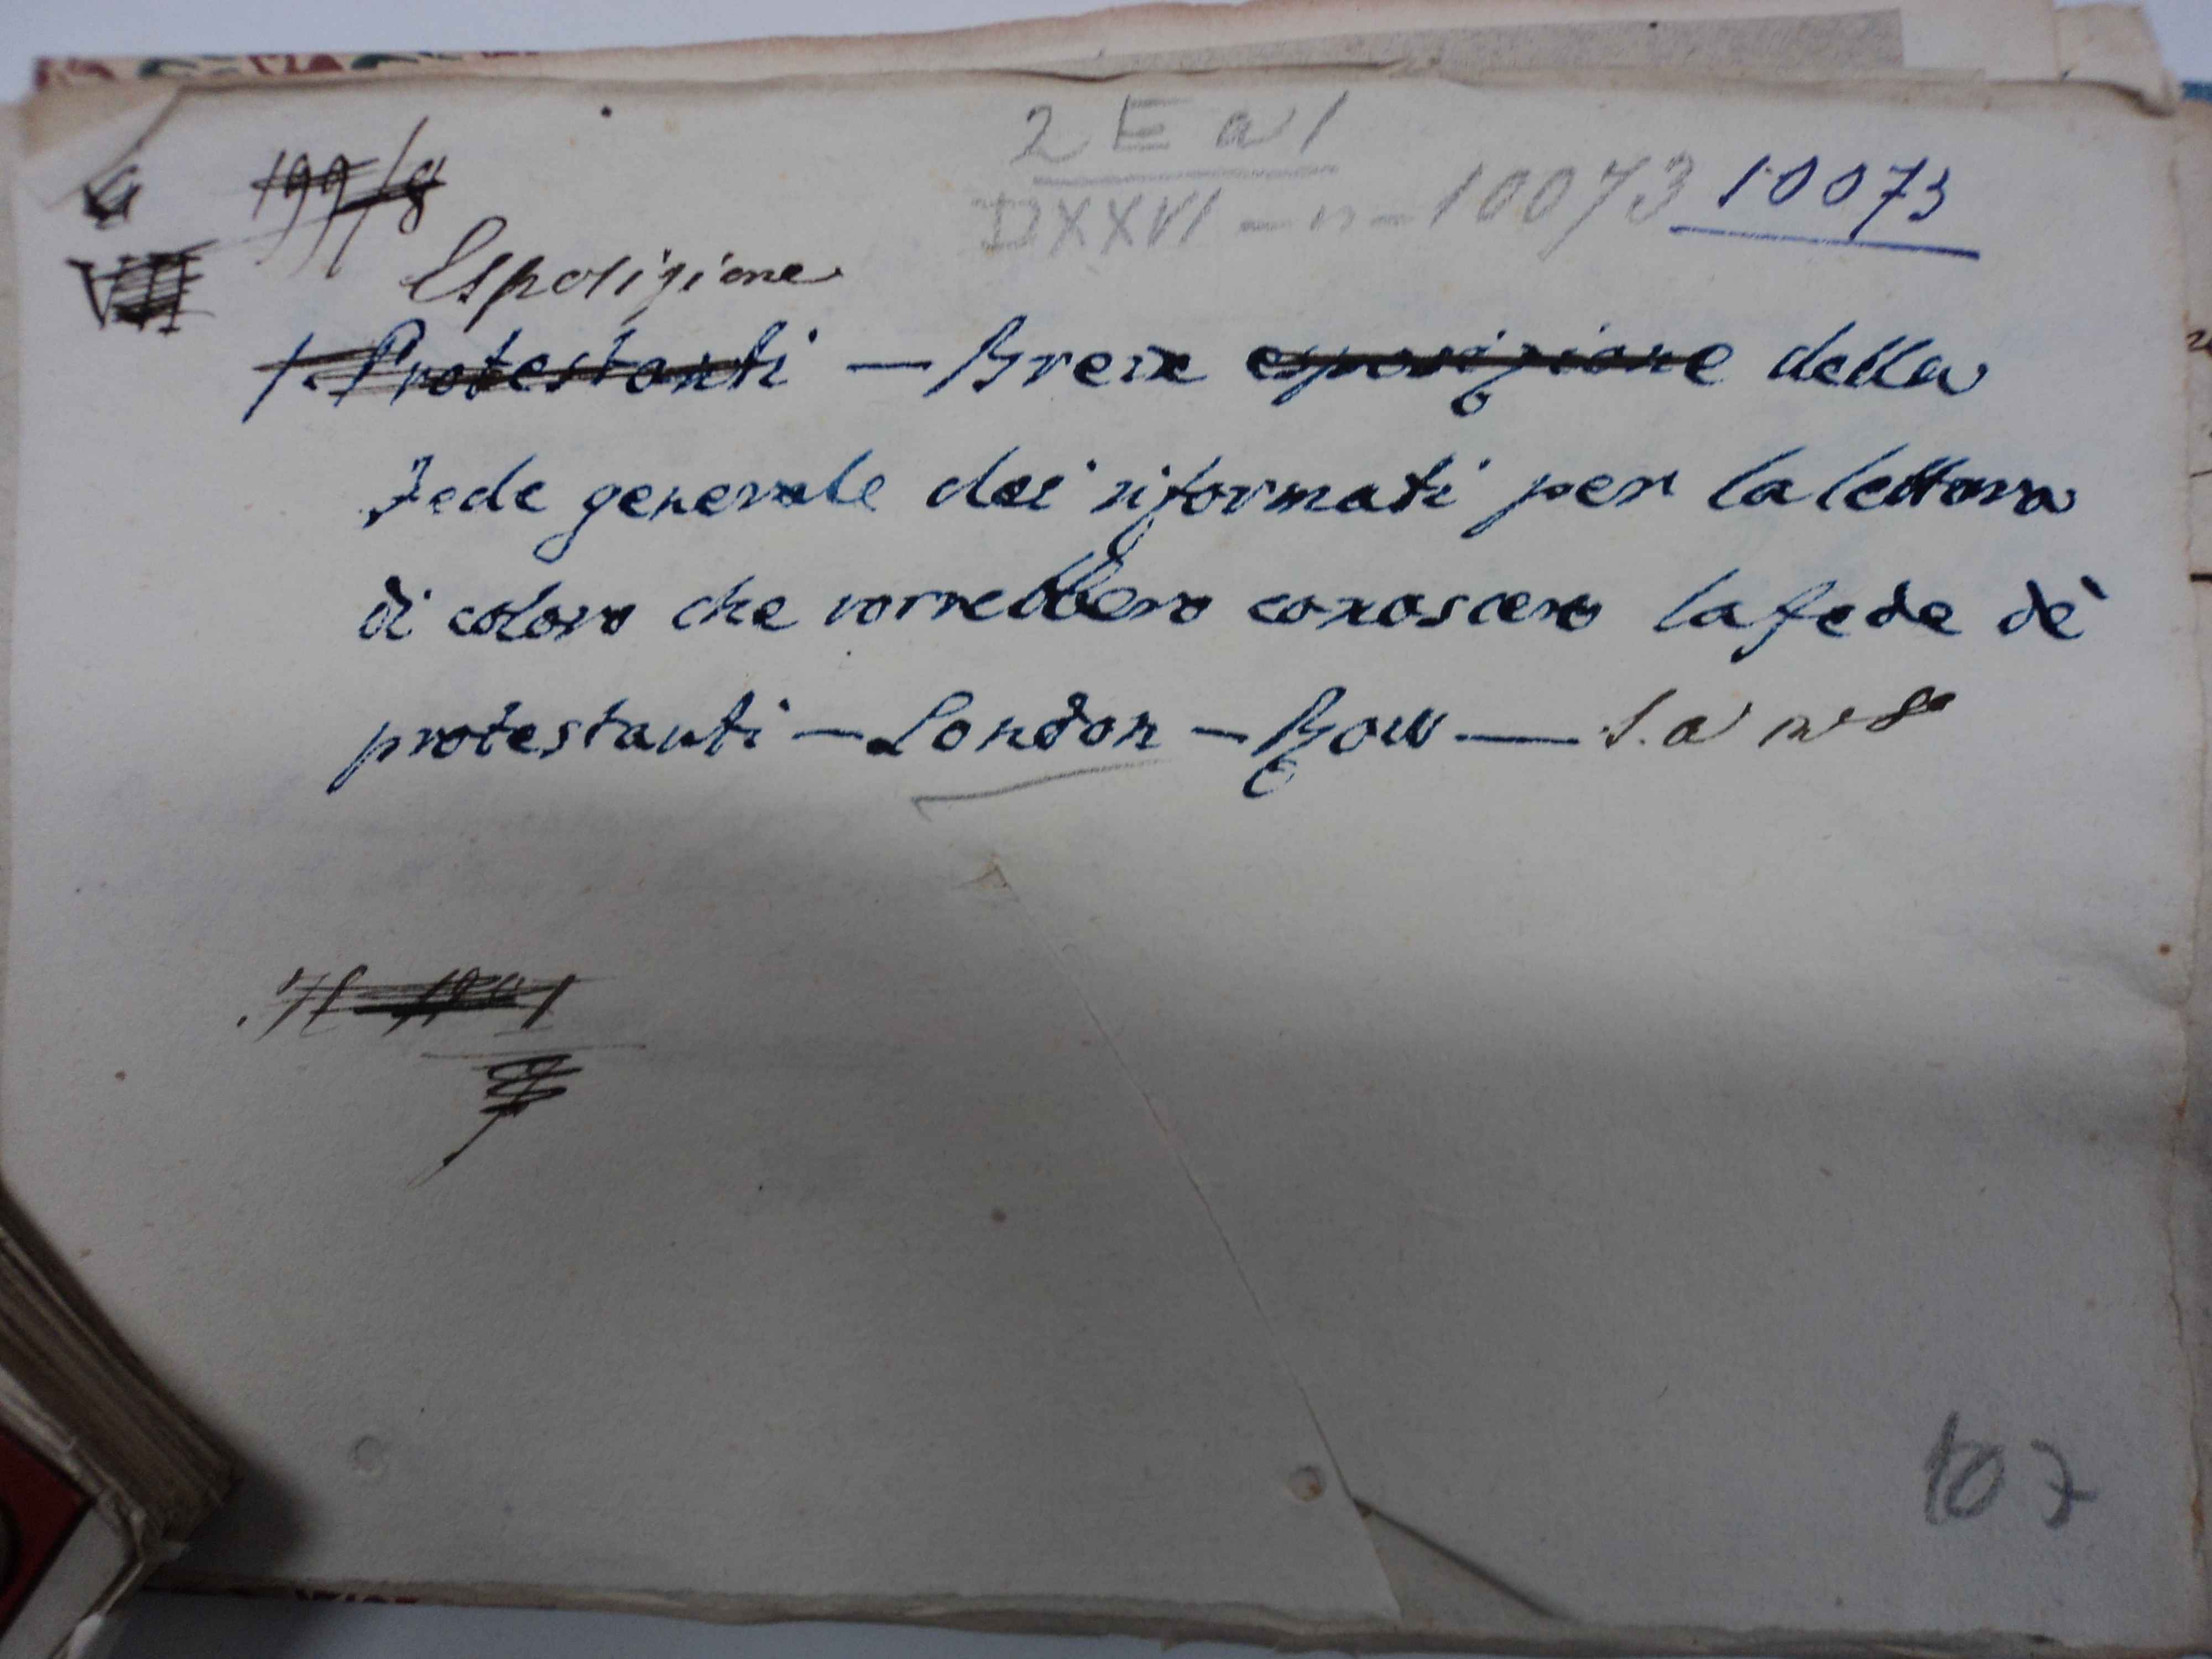 2 E a 1
199/8
DXXVI - n - 10073 10073
VII
Esposizione
1. Protestanti — Breve esposizione della
Fede generale dei riformati per la lettura
di coloro che vorrebbero conoscere la fede de'
protestanti — London — Bow — s. a in 8°
107